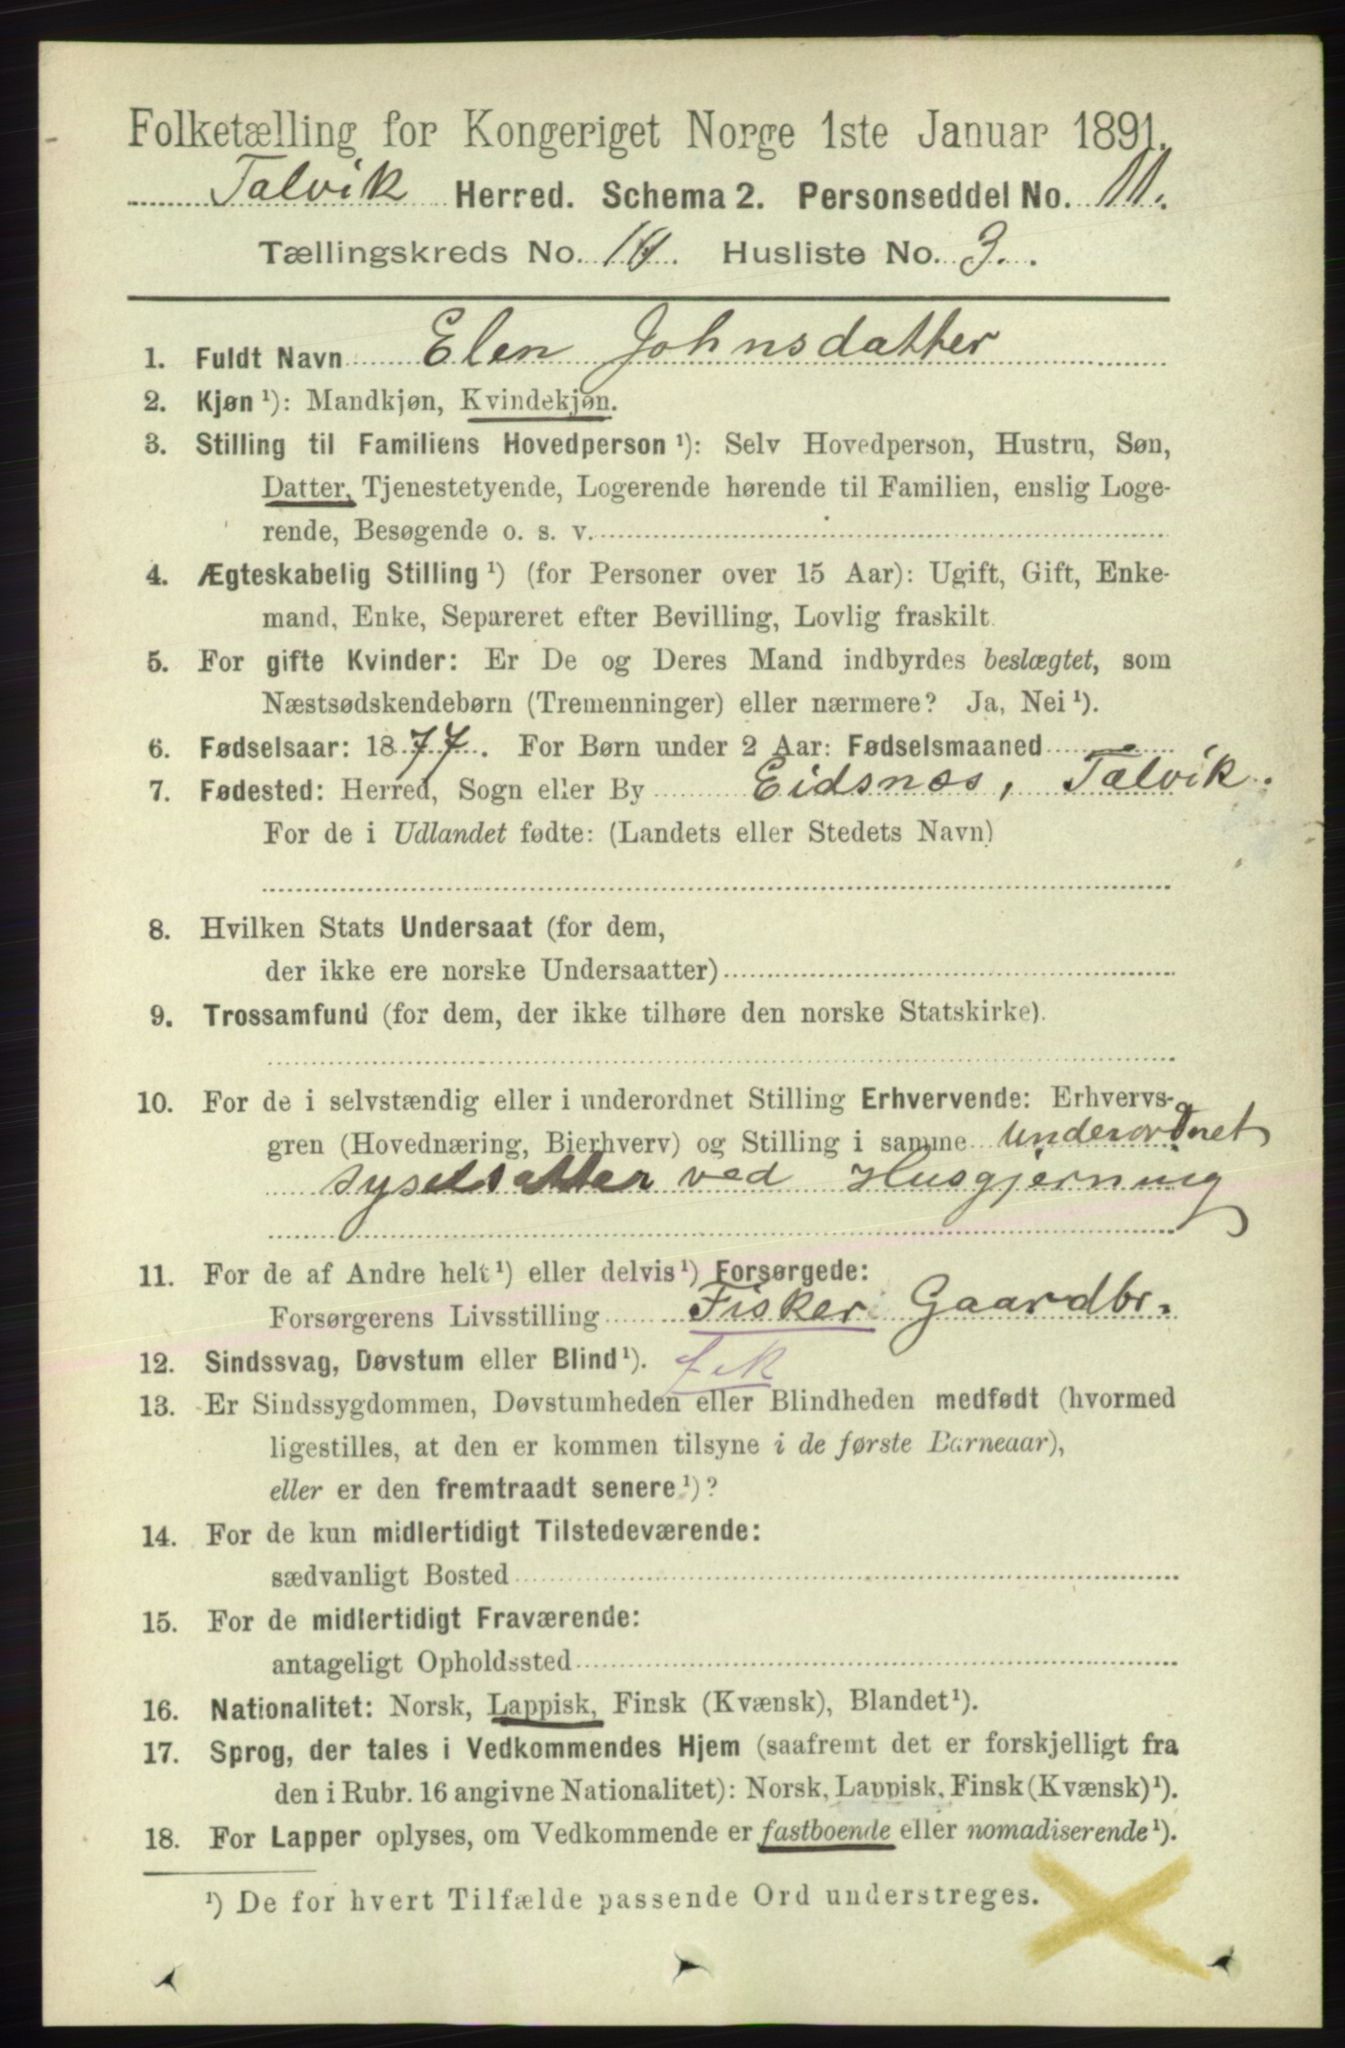 Folketælling for Kongeriget Norge 1ste Januar 1891.
Talvik Herred. Schema 2. Personseddel No. 11.
Tællingskreds No. 10. Husliste No. 3.
1. Fuldt Navn Elen Johnsdatter
2. Kjøn ¹): Mandkjøn, Kvindekjøn.
3. Stilling til Familiens Hovedperson ¹): Selv Hovedperson, Hustru, Søn,
Datter, Tjenestetyende, Logerende hørende til Familien, enslig Loge-
rende, Besøgende o. s. v.
4. Ægteskabelig Stilling ¹) (for Personer over 15 Aar): Ugift, Gift, Enke-
mand, Enke, Separeret efter Bevilling, Lovlig fraskilt.
5. For gifte Kvinder: Er De og Deres Mand indbyrdes beslægtet, som
Næstsødskendebørn (Tremenninger) eller nærmere? Ja, Nei ¹).
6. Fødselsaar: 1877. For Børn under 2 Aar: Fødselsmaaned
7. Fødested: Herred, Sogn eller By Eidsnæs, Talvik.
For de i Udlandet fødte: (Landets eller Stedets Navn)
8. Hvilken Stats Undersaat (for dem,
der ikke ere norske Undersaatter)
9. Trossamfund (for dem, der ikke tilhøre den norske Statskirke).
10. For de i selvstændig eller i underordnet Stilling Erhvervende: Erhvervs-
gren (Hovednæring, Bierhverv) og Stilling i samme Underordnet
sysselsatter ved Husgjerning
11. For de af Andre helt ¹) eller delvis ¹) Forsørgede:
Forsørgerens Livsstilling Fisker Gaardbr.
12. Sindssvag, Døvstum eller Blind ¹).
13. Er Sindssygdommen, Døvstumheden eller Blindheden medfødt (hvormed
ligestilles, at den er kommen tilsyne i de første Barneaar),
eller er den fremtraadt senere ¹)?
14. For de kun midlertidigt Tilstedeværende:
sædvanligt Bosted
15. For de midlertidigt Fraværende:
antageligt Opholdssted
16. Nationalitet: Norsk, Lappisk, Finsk (Kvænsk), Blandet ¹).
17. Sprog, der tales i Vedkommendes Hjem (saafremt det er forskjelligt fra
den i Rubr. 16 angivne Nationalitet): Norsk, Lappisk, Finsk (Kvænsk) ¹).
18. For Lapper oplyses, om Vedkommende er fastboende eller nomadiserende ¹).
¹) De for hvert Tilfælde passende Ord understreges.